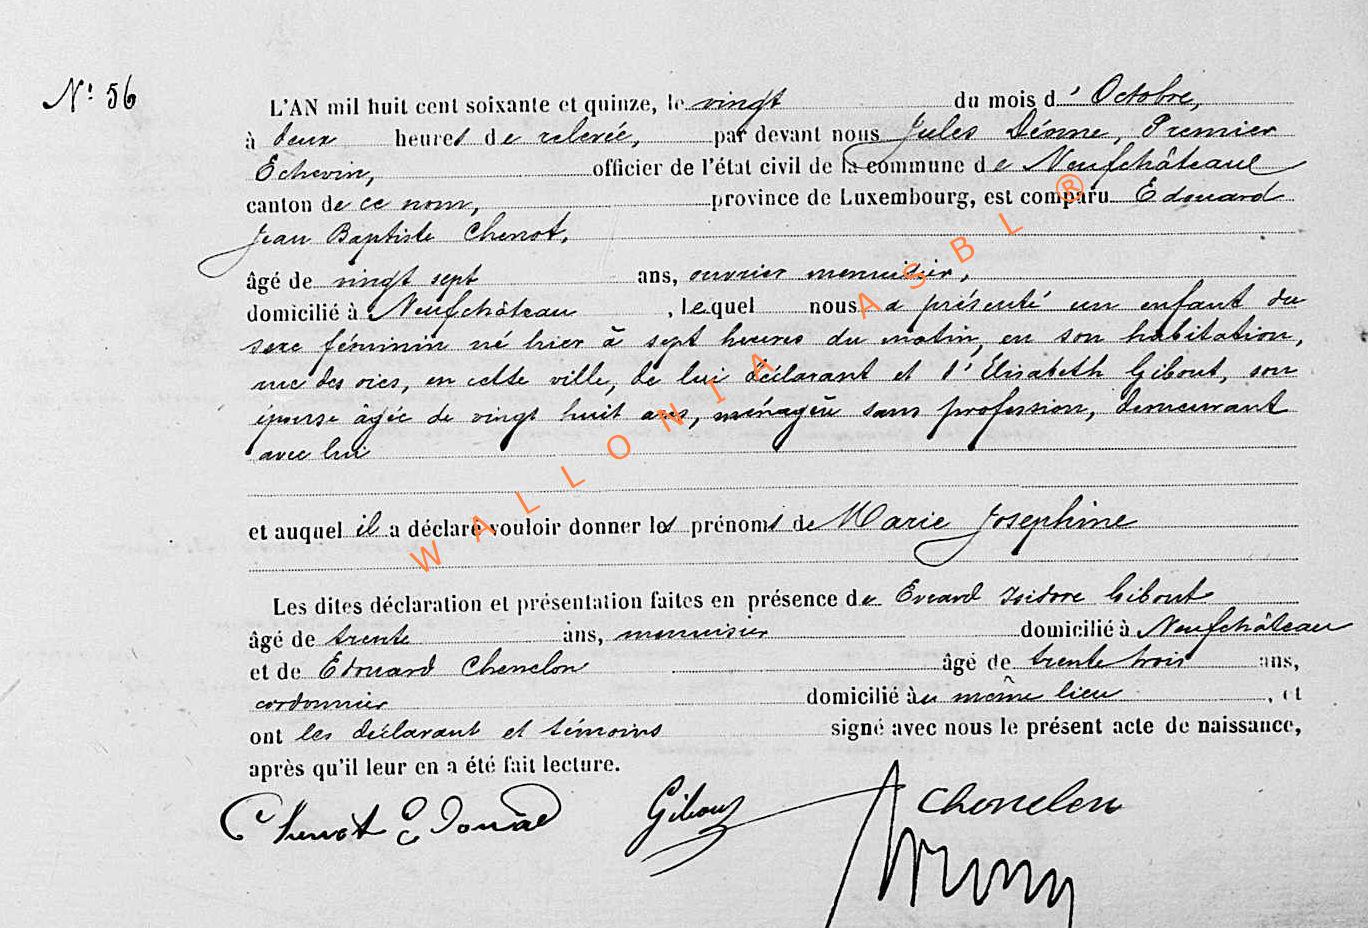 N° 56
L'AN mil huit cent soixante et quinze, le vingt du mois d'Octobre,
à deux heures de relevée, par devant nous Jules Dénne, Premier
Echevin, officier de l'état civil de la commune de Neufchâteau
canton de ce nom, province de Luxembourg, est comparu Edouard
Jean Baptiste Chenot,
âgé de vingt sept ans, ouvrier menuisier,
domicilié à Neufchâteau, lequel nous a présenté un enfant du
sexe féminin né hier à sept heures du matin, en son habitation,
rue des oies, en cette ville, de lui déclarant et d'Elisabeth Gibout, son
épouse âgée de vingt huit ans, ménagère sans profession, demeurant
avec lui
et auquel il a déclaré vouloir donner les prénoms de Marie Josephine
Les dites déclaration et présentation faites en présence de Evrard Isidore Gibout
âgé de trente ans, menuisier domicilié à Neufchâteau
et de Edouard Chenclon âgé de trente trois ans,
cordonnier domicilié au même lieu, et
ont les déclarant et témoins signé avec nous le présent acte de naissance,
après qu'il leur en a été fait lecture.
Chenot Edouard Gibout Chenclon
WALLONIA ASBL ®